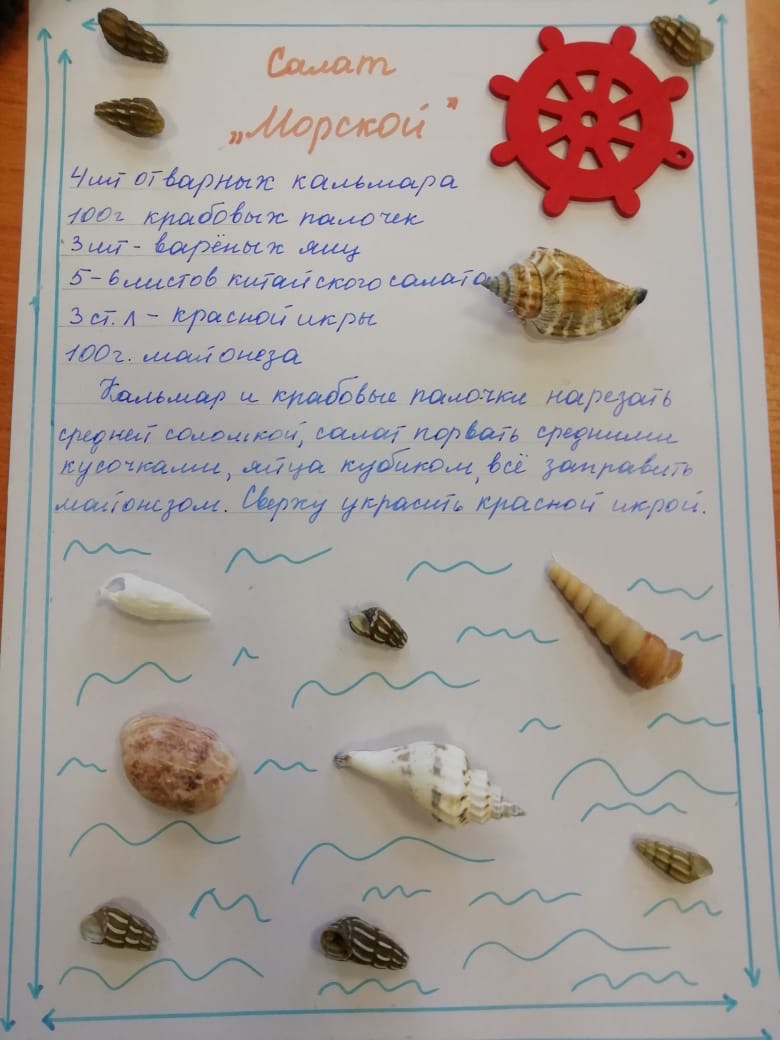 Салат
„Морской"
4 шт отварных кальмара
100г крабовых палочек
3 шт - варёных яиц
5-6 листов китайского салата
3 ст. л - красной икры
100г. майонеза
Кальмар и крабовые палочки нарезать
средней соломкой, салат порвать средними
кусочками, яйца кубиком, всё заправить
майонезом. Сверху украсить красной икрой.